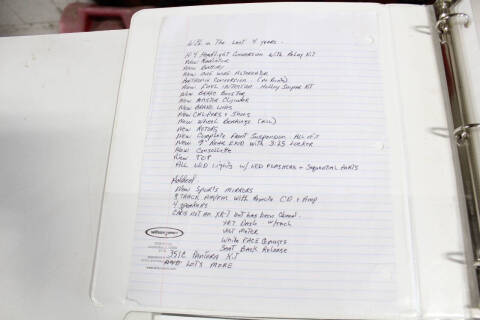 With in The Last 4 years..
H4 Headlight Conversion with Relay Kit
New Radiator
New Battery
New one wire Alternator
Pertronix Conversion
New Fuel Injection Holley Sniper Kit
New Brake Booster
New Master Cylinder
New Brake Lines
New Calipers + Shoes
New Wheel Bearings (ALL)
New Rotors
New Complete Front Suspension ALL of it
New 9" Rear End with 3:25 Locker
New Consolette
New Top
ALL LED Lights w/ LED Flashers + Sequential
Added:
New Sports Mirrors
8 Track AM/FM with Remote CD + Amp
4 speakers
CAR is not an XR-7 but has been Cloned.
XR7 Dash w/Tach
Volt Meter
White FACE Gauges
Seat Back Release
351C Pantera Kit
AND LOTS MORE